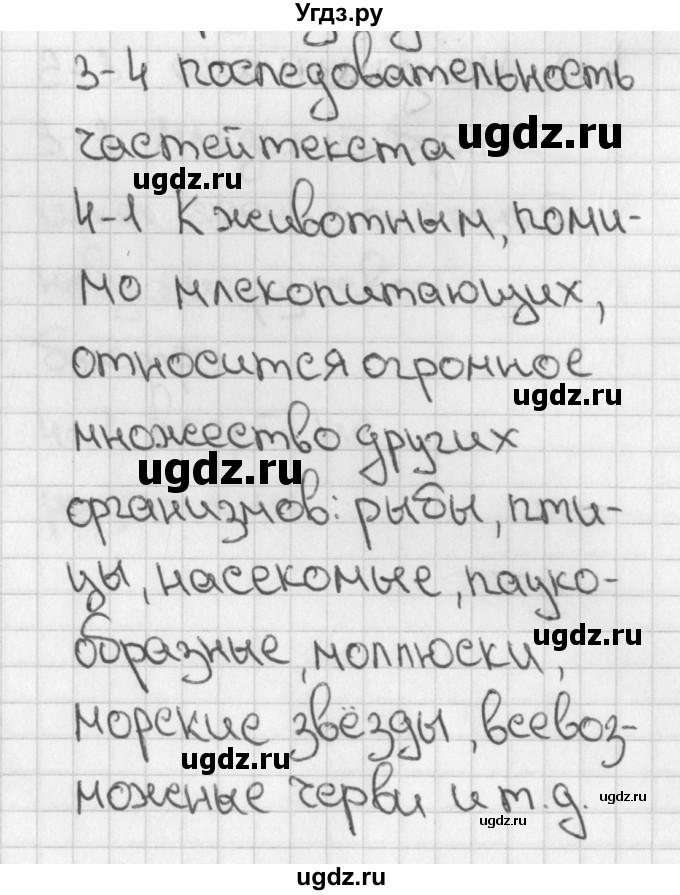 Угдз.ру
3-4 последовательность
частей текста
ugdz.ru
ugdz.ru
4-1 К животным, поми-
мо млекопитающих,
относится огромное
ugdz.ru
множество других
ugdz.ru
организмов: рыбы, пти-
цы, насекомые, пауко-
ugdz.ru
образные, моллюски,
морские звёзды, всевоз-
ugdz.ru
можные черви и т.д.
ugdz.ru
ugdz.ru
ugdz.ru